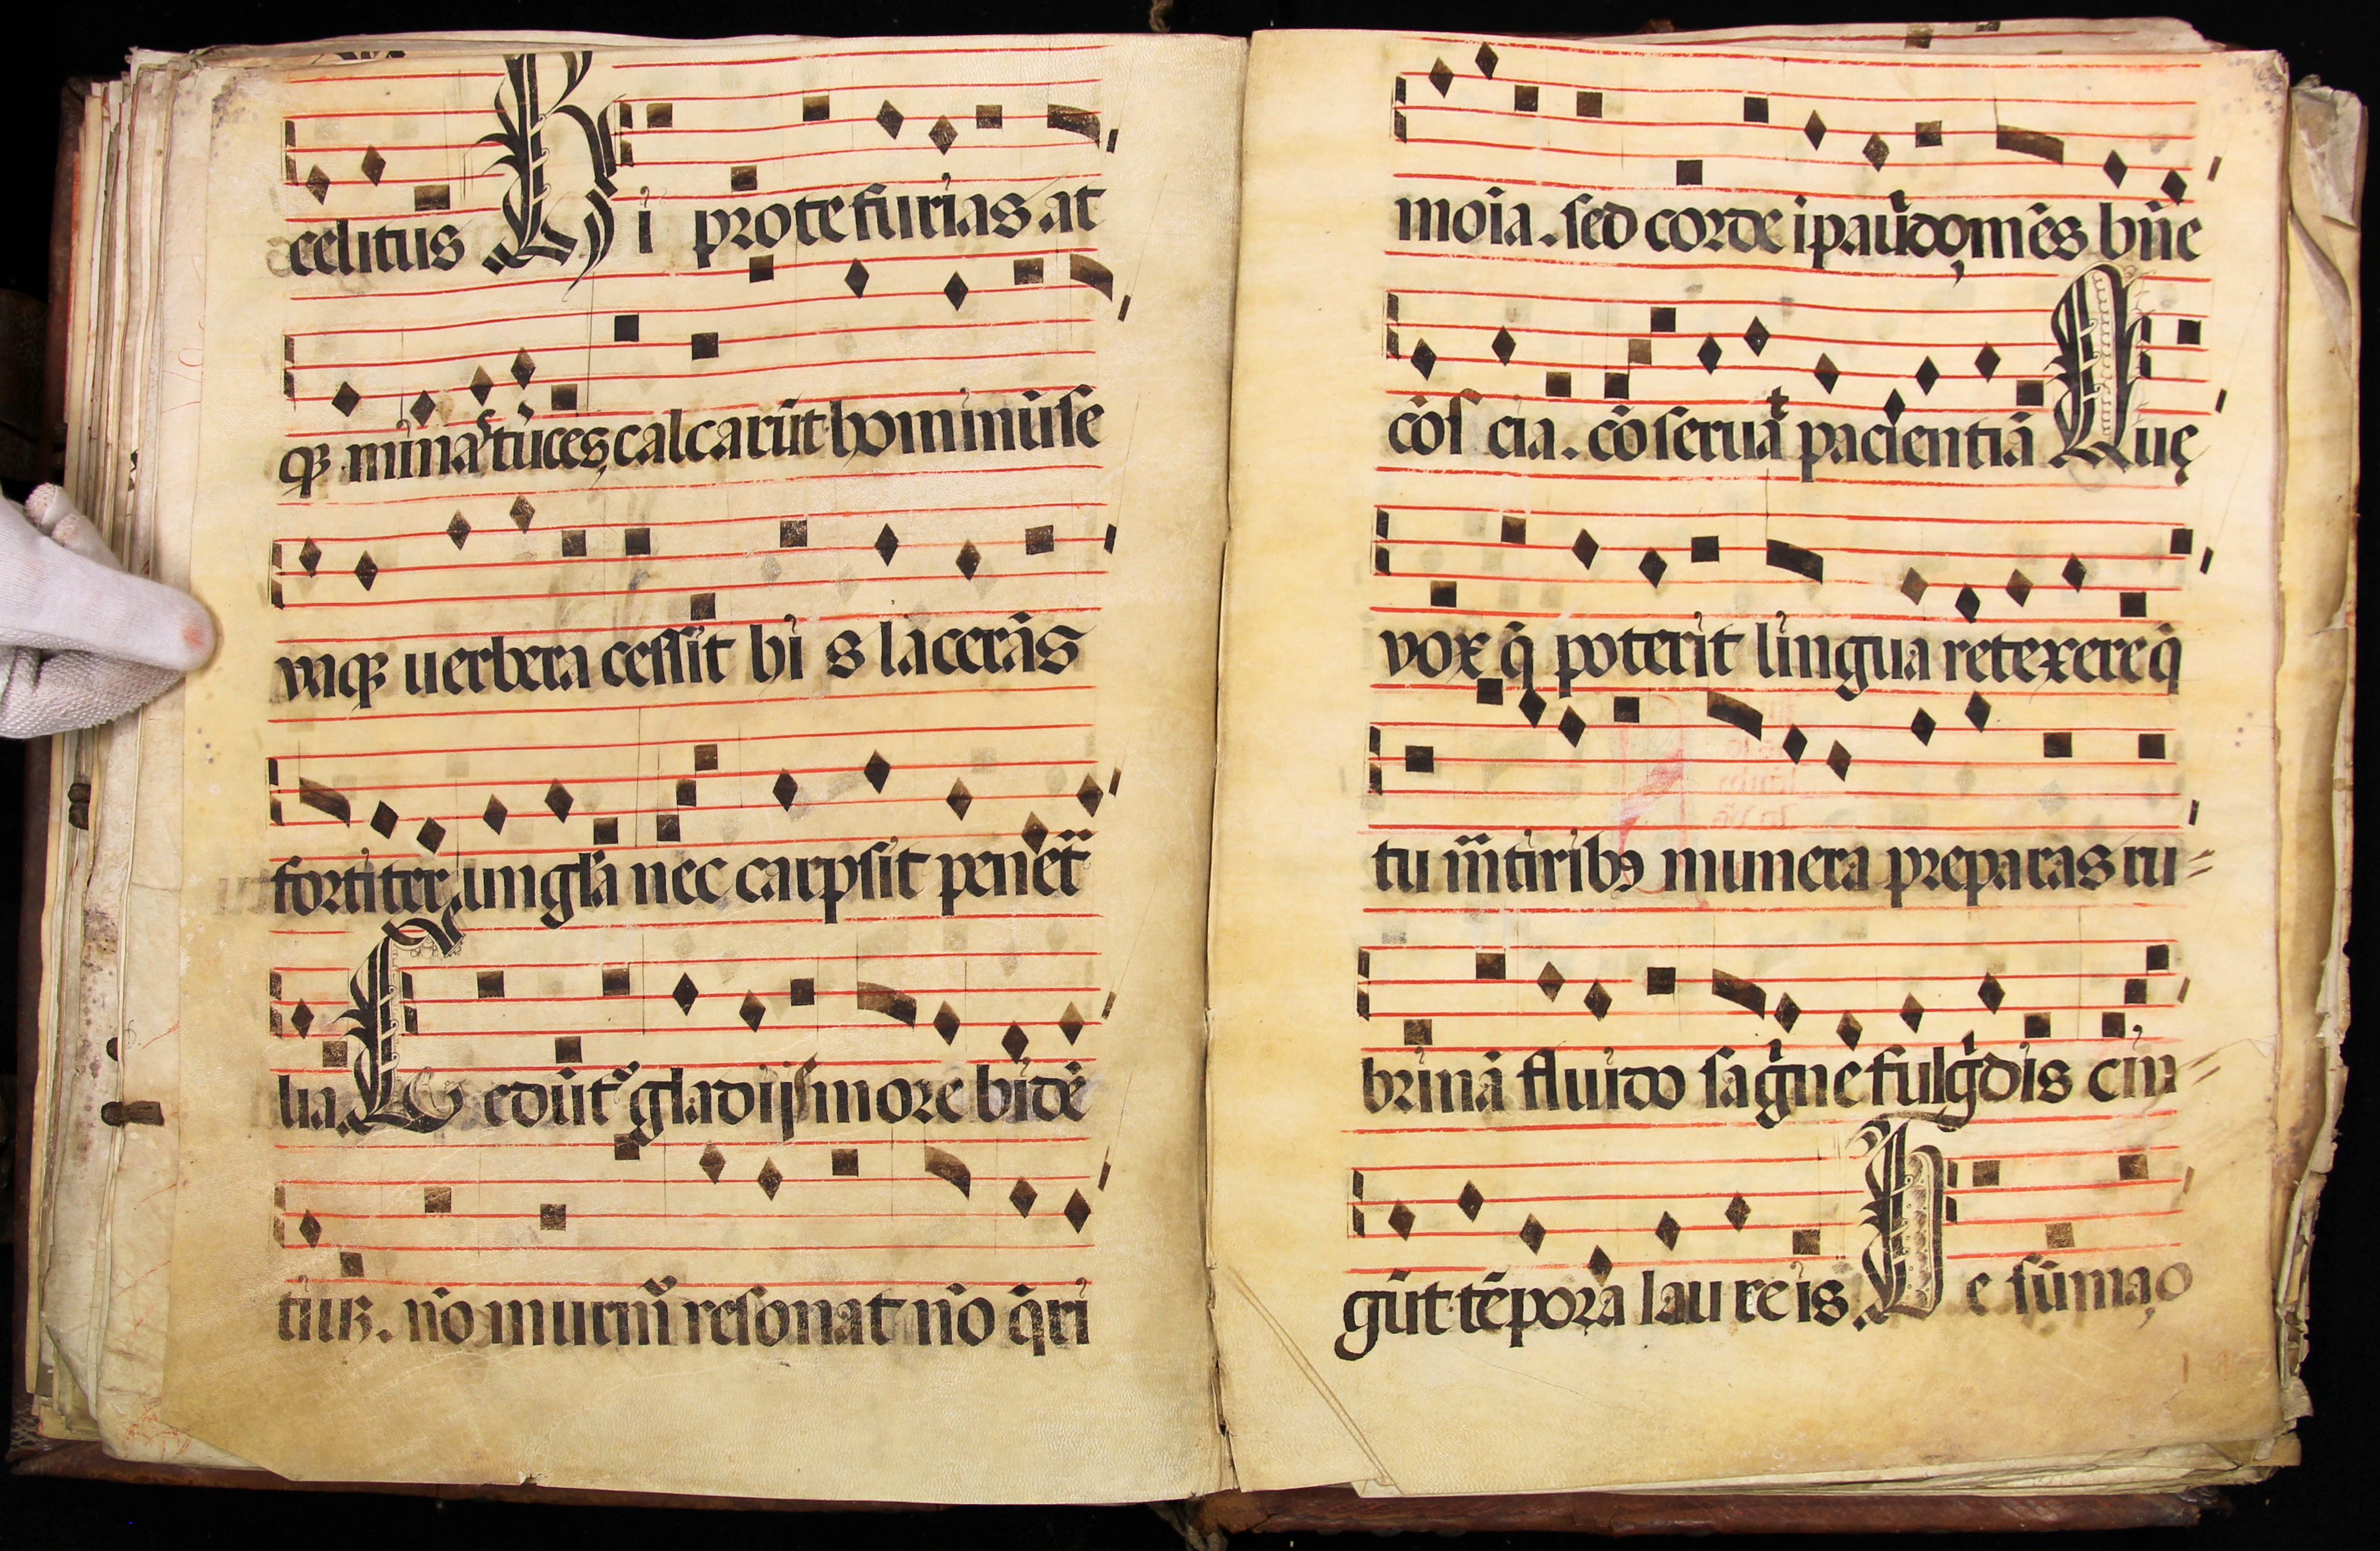 celitus Hi pro te furias at
qꝫ mina᷒ truces, calcarūt hominū se
uaqꝫ uerbera cessit his lacerās
fortiter ungla nec carpsit penet̃
lia. Cedūt᷒ gladijs more bidē
tiuꝫ. nō murm̃ resonat nō q̄ri
moīa. sed corde ipauīdo, mēs bn̄e
cōs cia. cōseruāt pacientiā Que
vox q̄ poterit lingua retexere q̄
tu m̃tiribꝰ munera preparas ru
brinā fluido sāgne fulgēdis cin
gūt tēpora laureis. Te sūma, o